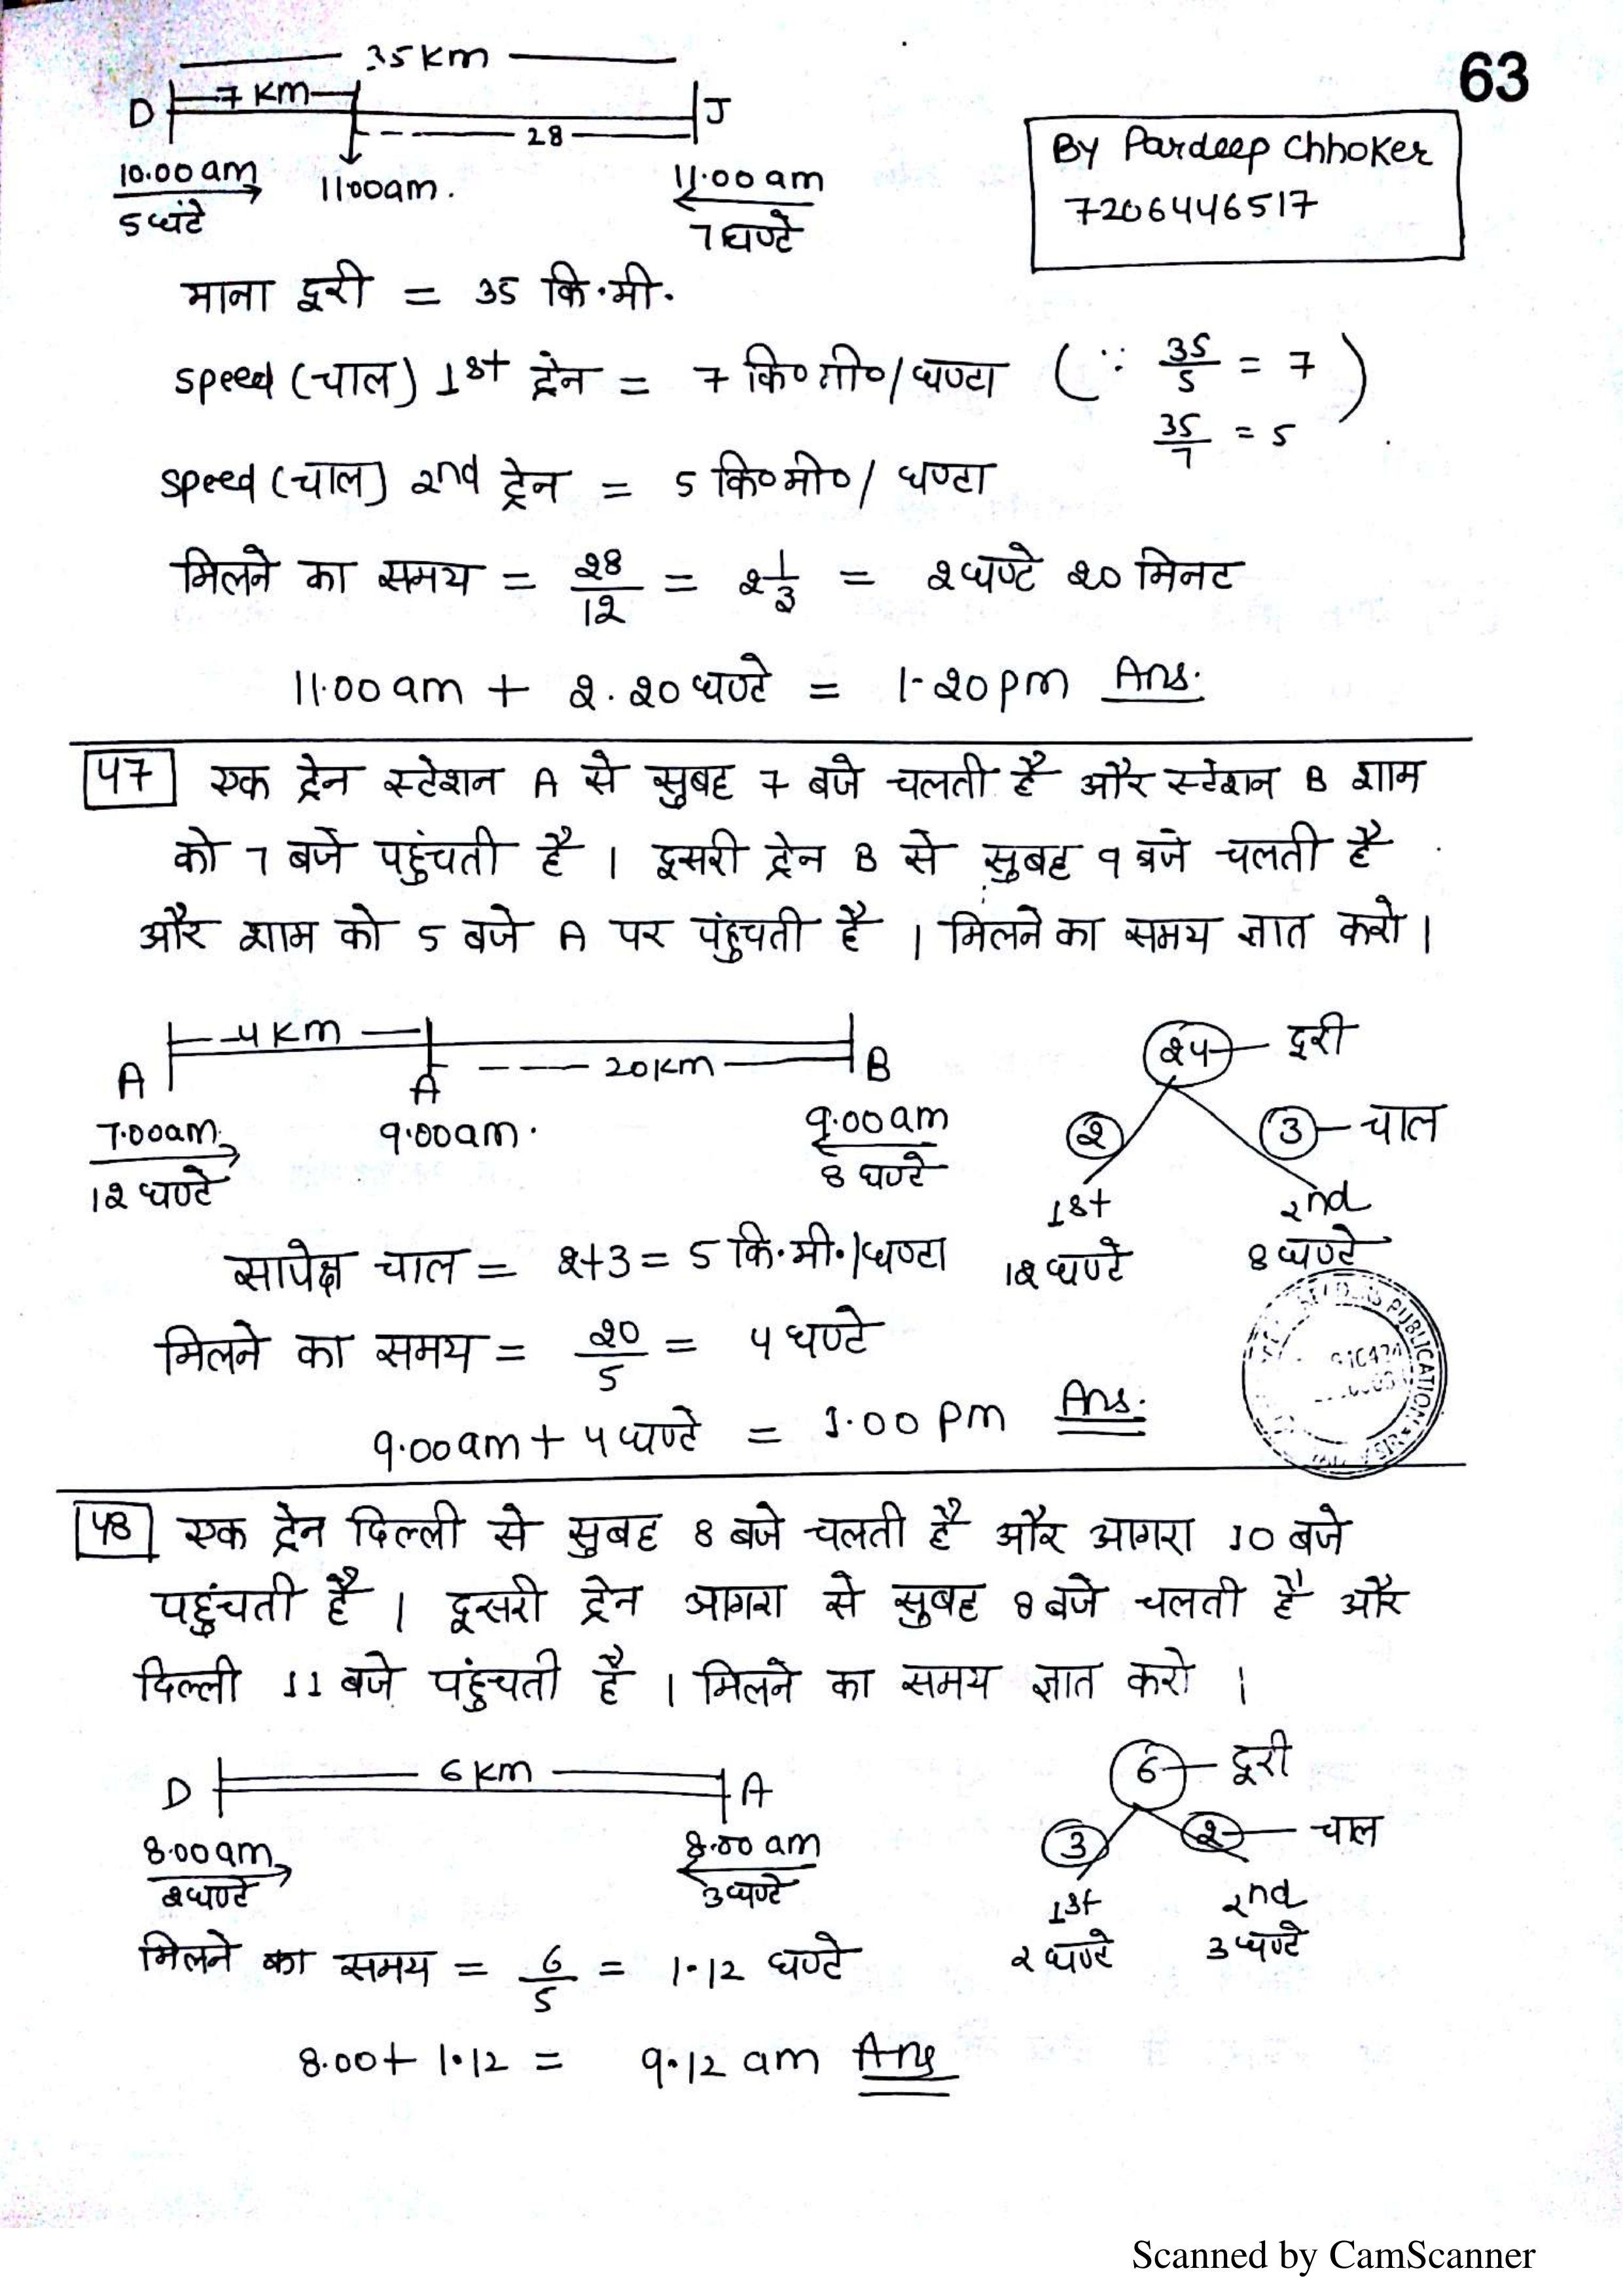 63
35 Km
D 7 Km 28 J
10.00 am 11.00am. 11.00 am
5 घंटे 7 घण्टे
By Pardeep Chhoker
7206446517
माना दूरी = 35 कि.मी.
speed (चाल) 1st ट्रेन = 7 कि०मी०/घण्टा ( ∵ 35/5 = 7 )
35/7 = 5
speed (चाल) 2nd ट्रेन = 5 कि०मी०/ घण्टा
मिलने का समय = 28/12 = 2 1/3 = 2 घण्टे 20 मिनट
11.00 am + 2.20 घण्टे = 1.20 pm Ans.
47 एक ट्रेन स्टेशन A से सुबह 7 बजे चलती है और स्टेशन B शाम
को 7 बजे पहुंचती है । दूसरी ट्रेन B से सुबह 9 बजे चलती है
और शाम को 5 बजे A पर पंहुचती है । मिलने का समय ज्ञात करो ।
4 Km
A A 20 Km B
7.00am 9.00am. 9.00 am
12 घण्टे 8 घण्टे
24 दूरी
2 3 चाल
1st 2nd
12 घण्टे 8 घण्टे
सापेक्ष चाल = 2+3 = 5 कि.मी./घण्टा
मिलने का समय = 20/5 = 4 घण्टे
9.00 am + 4 घण्टे = 1.00 pm Ans.
PUBLICATION
48 एक ट्रेन दिल्ली से सुबह 8 बजे चलती है और आगरा 10 बजे
पहुंचती है । दूसरी ट्रेन आगरा से सुबह 8 बजे चलती है और
दिल्ली 11 बजे पहुंचती है । मिलने का समय ज्ञात करो ।
D 6 Km A
8.00 am 8.00 am
2 घण्टे 3 घण्टे
6 दूरी
3 2 चाल
1st 2nd
2 घण्टे 3 घण्टे
मिलने का समय = 6/5 = 1.12 घण्टे
8.00 + 1.12 = 9.12 am Ans
Scanned by CamScanner